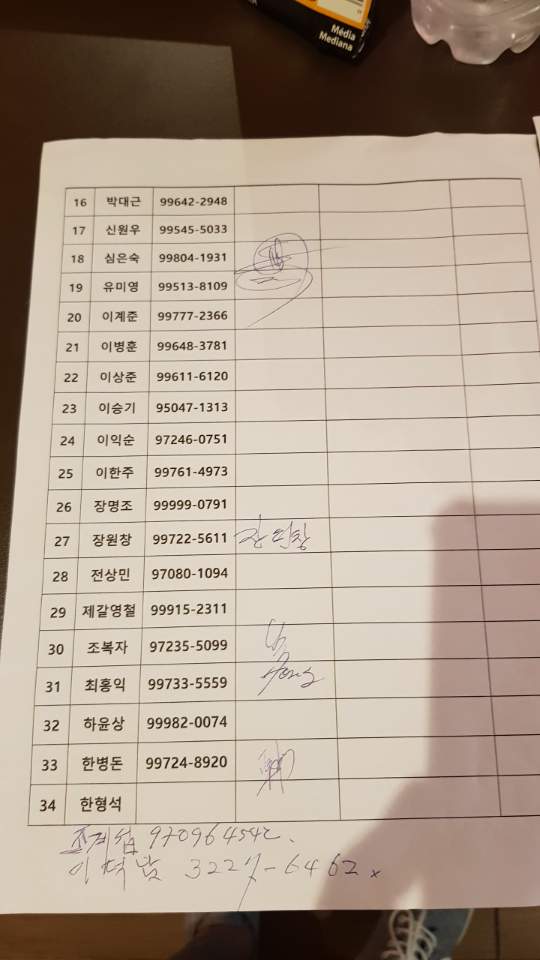 Média
Mediana
16 박대근 99642-2948
17 신원우 99545-5033
18 심은숙 99804-1931
19 유미영 99513-8109
20 이계준 99777-2366
21 이병훈 99648-3781
22 이상준 99611-6120
23 이승기 95047-1313
24 이익순 97246-0751
25 이한주 99761-4973
26 장명조 99999-0791
27 장원창 99722-5611
28 전상민 97080-1094
29 제갈영철 99915-2311
30 조복자 97235-5099
31 최홍익 99733-5559
32 하윤상 99982-0074
33 한병돈 99724-8920
34 한형석
970964542
3227-6462